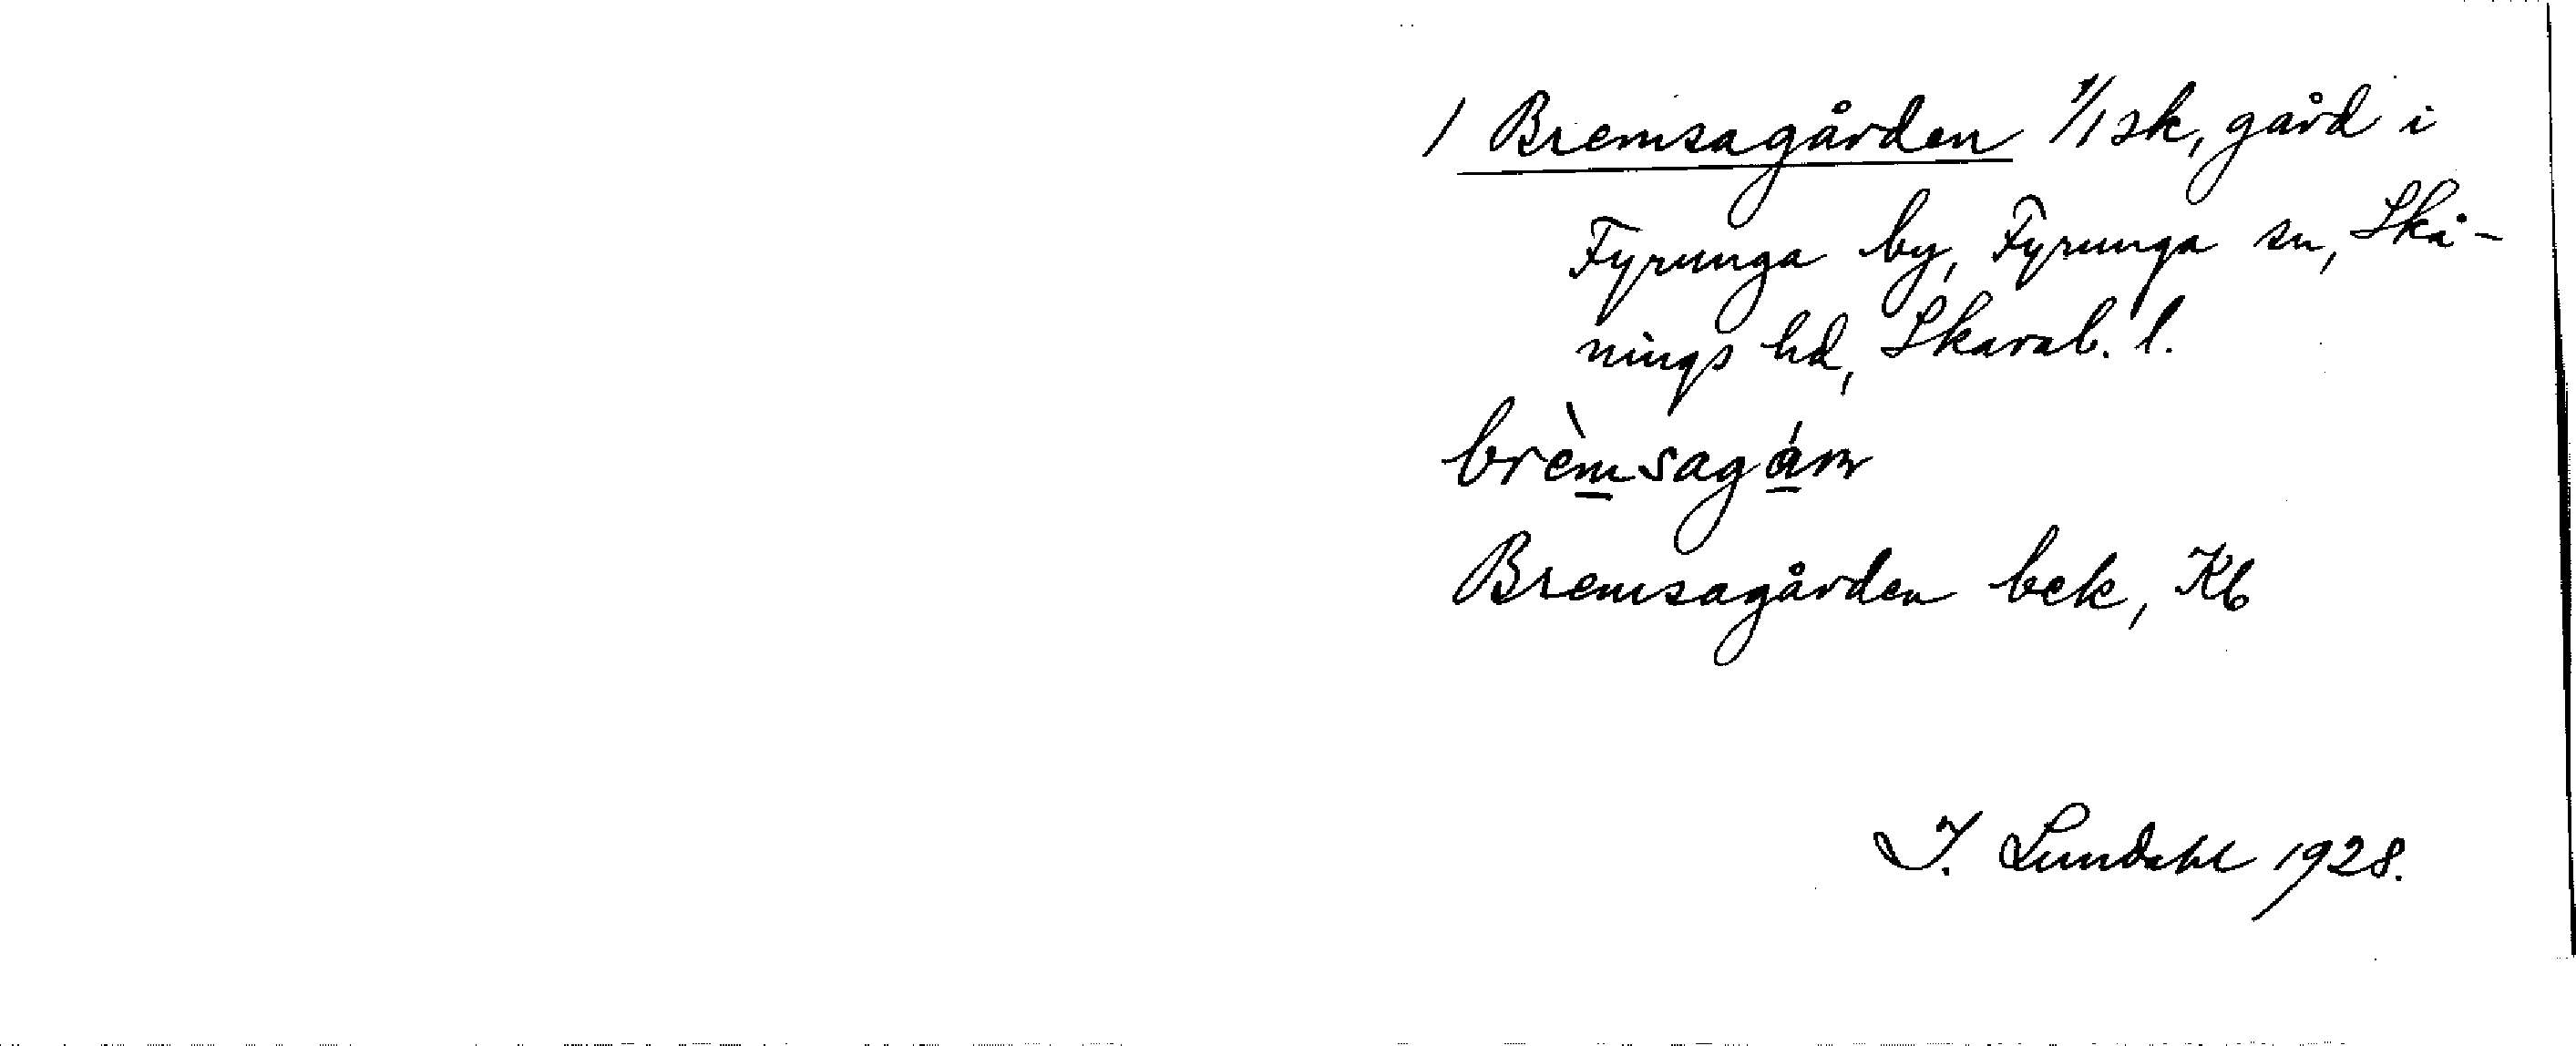 1 Bremsagården 1/1 sk, gård i
Fyrunga by, Fyrunga sn, Skå-
nings hd, Skarab. l.
brèmsagán
Bremsagården bek, Kb
I. Lundahl 1928.